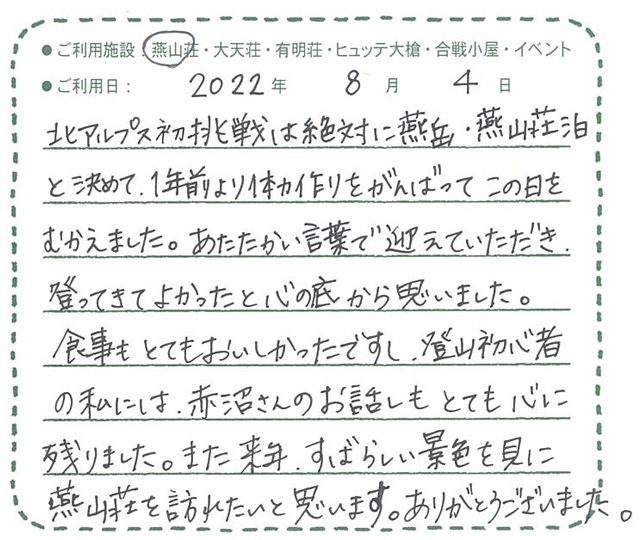 ●ご利用施設：燕山荘・大天荘・有明荘・ヒュッテ大槍・合戦小屋・イベント
●ご利用日： 2022年 8月 4日
北アルプス初挑戦は絶対に燕岳・燕山荘泊
と決めて、1年前より体力作りをがんばってこの日を
むかえました。あたたかい言葉で迎えていただき、
登ってきてよかったと心の底から思いました。
食事もとてもおいしかったですし、登山初心者
の私には、赤沼さんのお話しもとても心に
残りました。また来年、すばらしい景色を見に
燕山荘を訪れたいと思います。ありがとうございました。